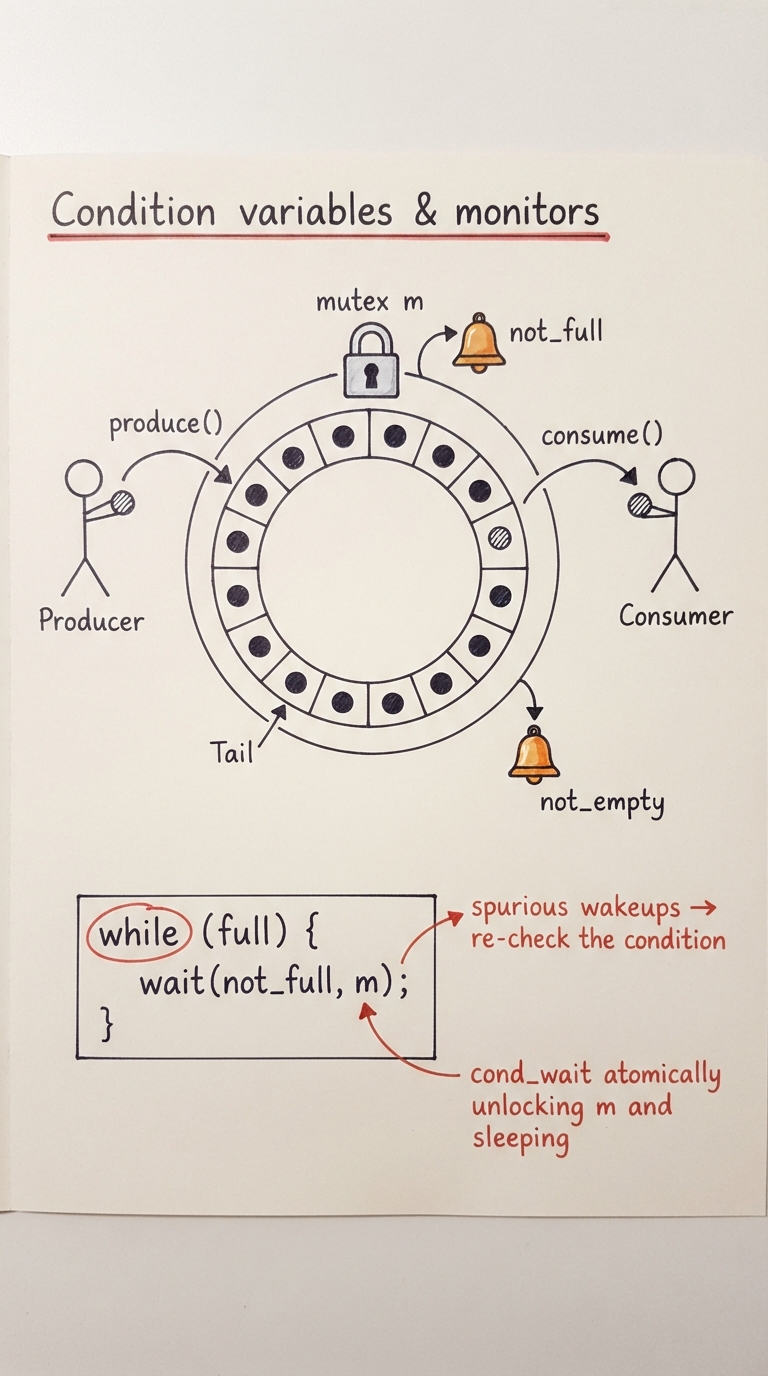 Condition variables & monitors
mutex m
not_full
produce()
consume()
Producer
Consumer
Tail
not_empty
while (full) {
wait(not_full, m);
}
spurious wakeups →
re-check the condition
cond_wait atomically
unlocking m and
sleeping